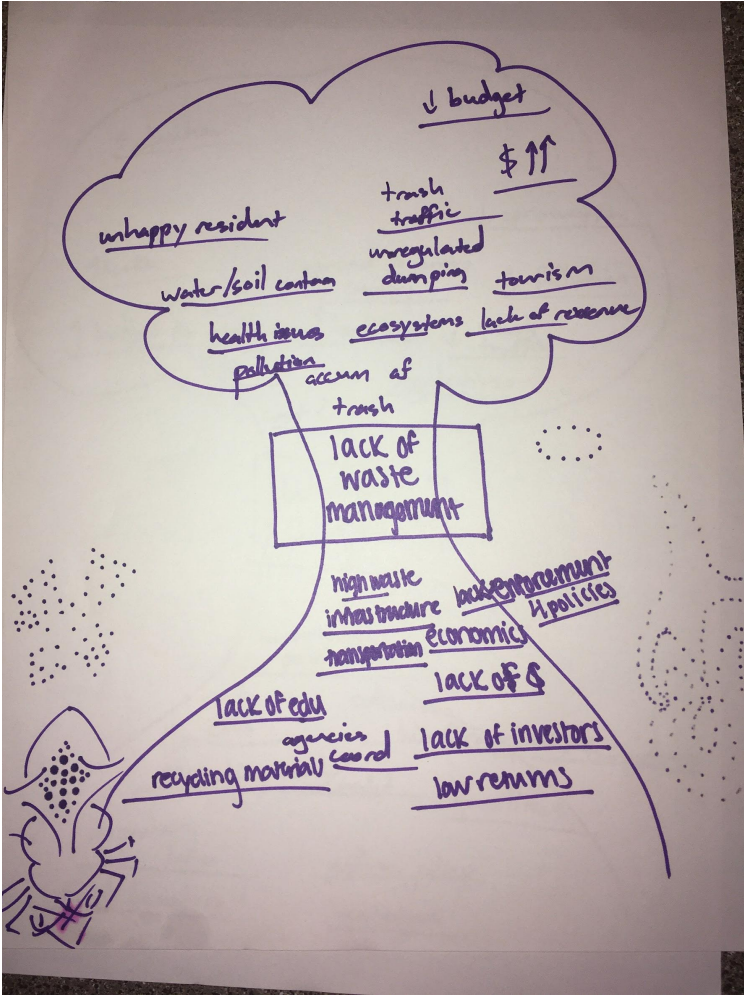 ↓ budget
$ ↑↑
trash
traffic
unhappy resident
unregulated
dumping
tourism
water/soil contam
health issues
ecosystems
lack of revenue
pollution
accum of
trash
lack of
waste
management
high waste
infrastructure
transportation
lack enforcement
4 policies
economics
lack of $
lack of edu
agencies
coord
lack of investors
recycling materials
low returns